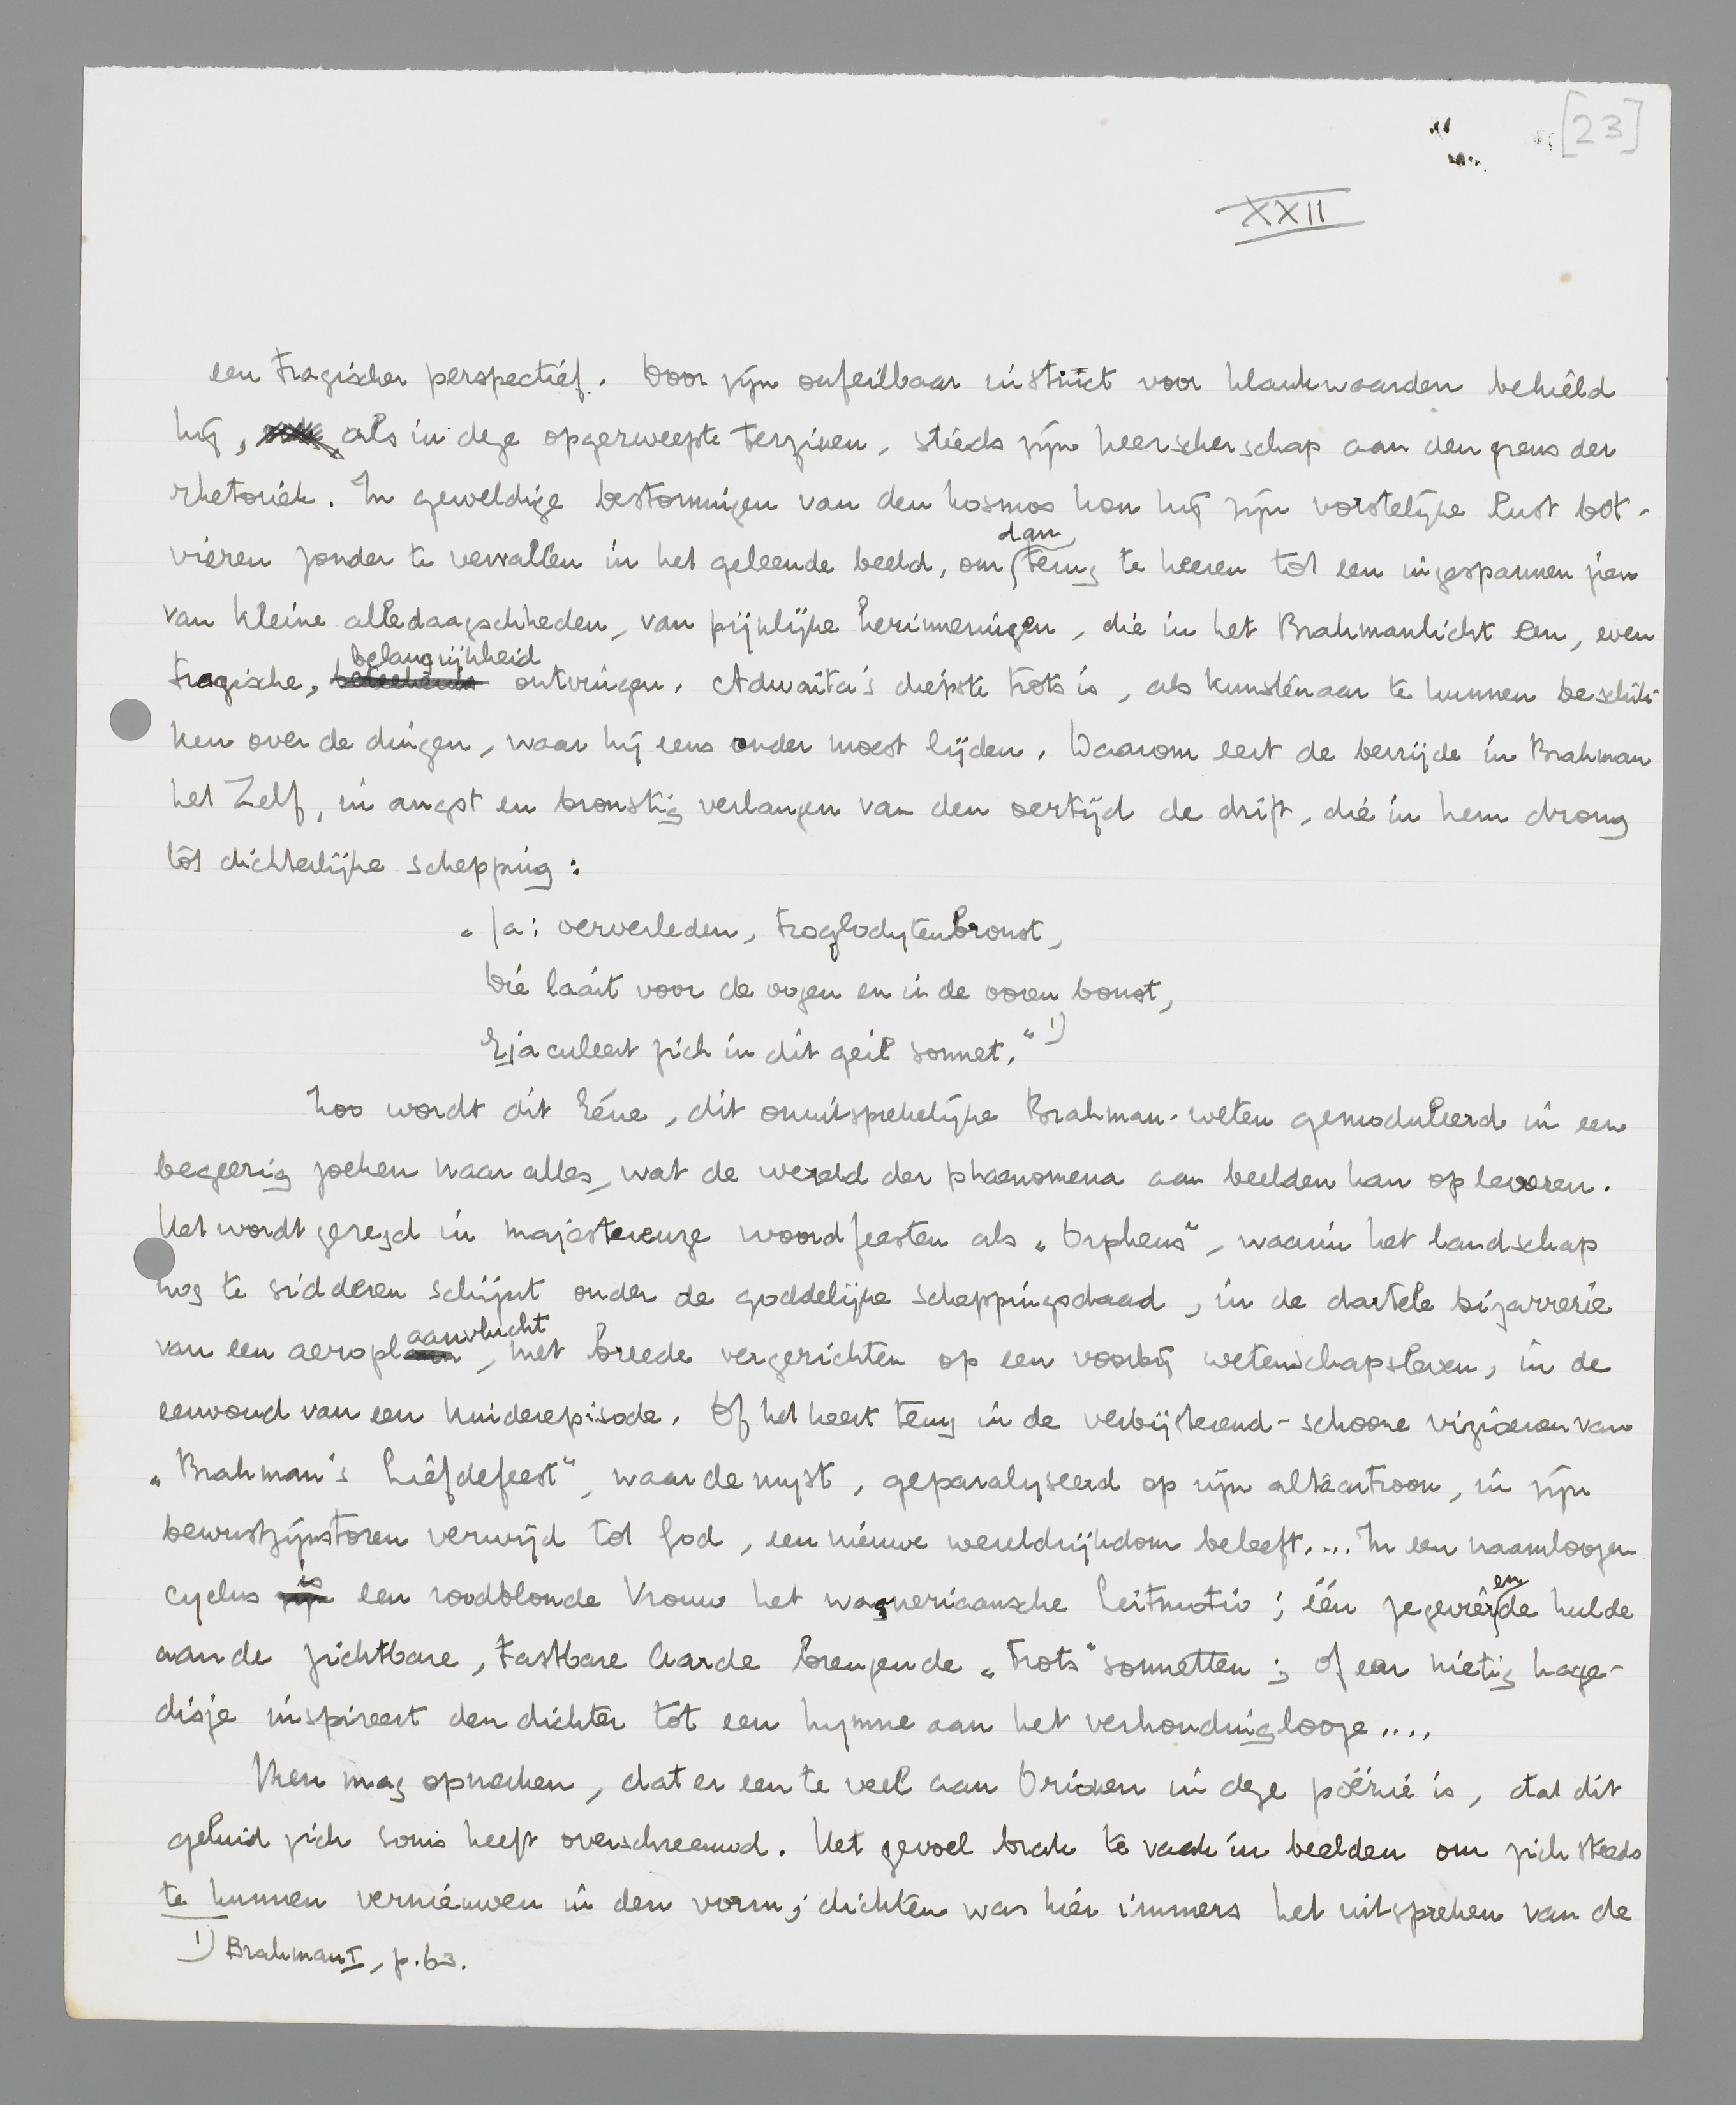 [23]
XXII
een tragischer perspectief. Door zijn onfeilbaar instinct voor klankwaarden behield
hij, als in deze opgezweepte terzinen, steeds zijn heerscherschap aan den grens der
rhetoriek. In geweldige bestormingen van den kosmos kon hij zijn vorstelijke lust bot-
vieren zonder te vervallen in het geleende beeld, om dan terug te keeren tot een ingespannen zien
van kleine alledaagschheden, van pijnlijke herinneringen, die in het Brahmanlicht een, even
tragische, belangrijkheid ontvingen. Adwaita's diepste trots is, als kunstenaar te kunnen beschik-
ken over de dingen, waar hij eens onder moest lijden. Daarom eert de bevrijde in Brahman
het Zelf, in angst en bronstig verlangen van den oertijd de drift, die in hem drong
tot dichterlijke schepping:
„Ja: ververleden, troglodytenbronst,
Die laait voor de oogen en in de ooren bonst,
Ejaculeert zich in dit geil sonnet.“ 1)
Zoo wordt dit Eéne, dit onuitsprekelijke Brahman-weten gemoduleerd in een
begeerig zoeken naar alles, wat de wereld der phaenomena aan beelden kan opleveren.
Het wordt gezegd in majestueuze woordfeesten als „Orpheus“, waarin het landschap
nog te sidderen schijnt onder de goddelijke scheppingsdaad, in de dartele bizarrerie
van een aeroplaanvlucht, met breede vergezichten op een voorbij wetenschapsleven, in de
eenvoud van een kinderepisode. Of het keert terug in de verbijsterend-schoone vizioenen van
„Brahman's Liefdefeest“, waar de myst, geparalyseerd op zijn altaartroon, in zijn
bewustzijnstoren verwijd tot God, een nieuwe wereldrijkdom beleeft.... In een naamloozen
cyclus is een roodblonde Vrouw het wagneriaansche Leitmotiv; één zegevierende hulde
aan de zichtbare, tastbare Aarde brengende „Trots“ sonnetten; of een nietig hage-
disje inspireert den dichter tot een hymne aan het verhoudinglooze....
Men mag opmerken, dat er een te veel aan Orionen in deze poëzie is, dat dit
geluid zich soms heeft overschreeuwd. Het gevoel brak te vaak in beelden om zich steeds
te kunnen vernieuwen in den vorm; dichten was hier immers het uitspreken van de
1) Brahman I, p. 63.